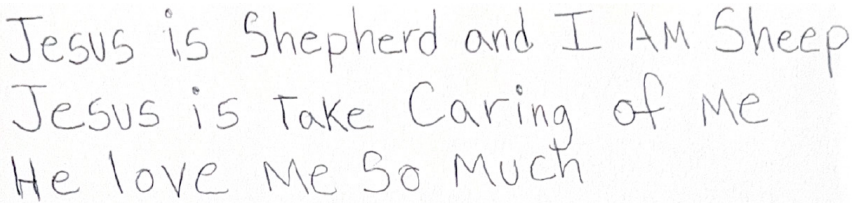 Jesus is Shepherd and I AM Sheep
Jesus is Take Caring of Me
He love Me So Much